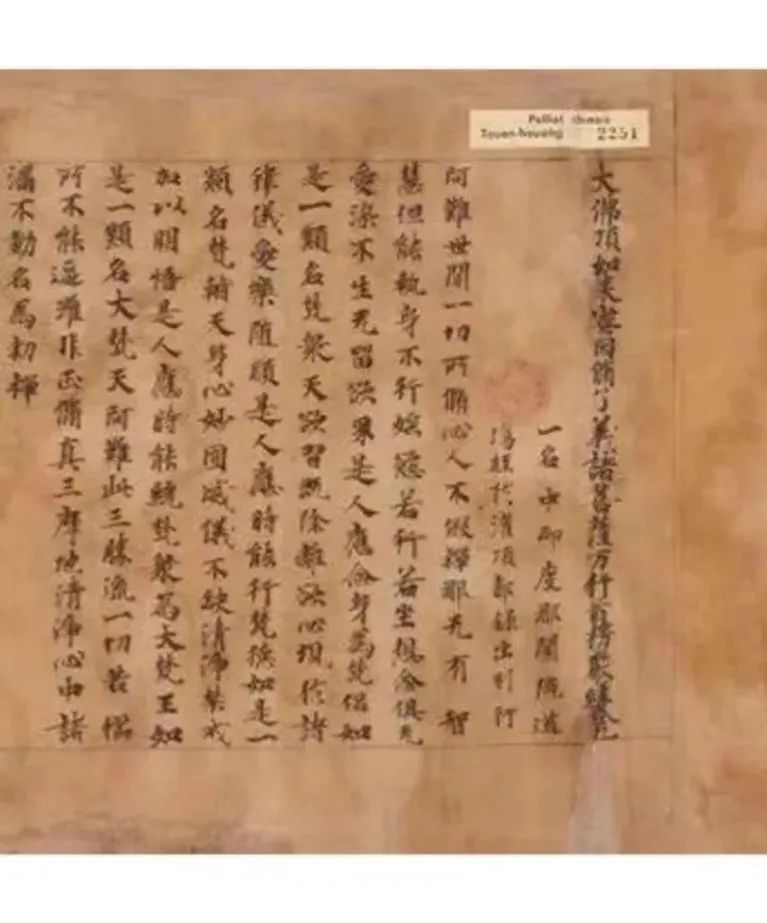 Pelliot chinois
Touen-houang 2251
大佛頂如来密因脩了義諸菩薩万行首楞嚴經卷
一名中印度那蘭陁道
場經於灌頂部録出別行
阿難世間一切所脩心人不假禪那无有智
慧但能執身不行婬慾若行若坐想念俱无
愛染不生无留欲界是人應念身為梵侶如
是一類名梵衆天欲習既除離欲心現於諸
律儀愛樂随順是人應時能行梵徳如是一
類名梵輔天身心妙圓威儀不缺清淨禁戒
加以明悟是人應時能統梵衆為大梵王如
是一類名大梵天阿難此三勝流一切苦惱
所不能逼雖非正脩真三摩地清淨心中諸
漏不動名為初禪